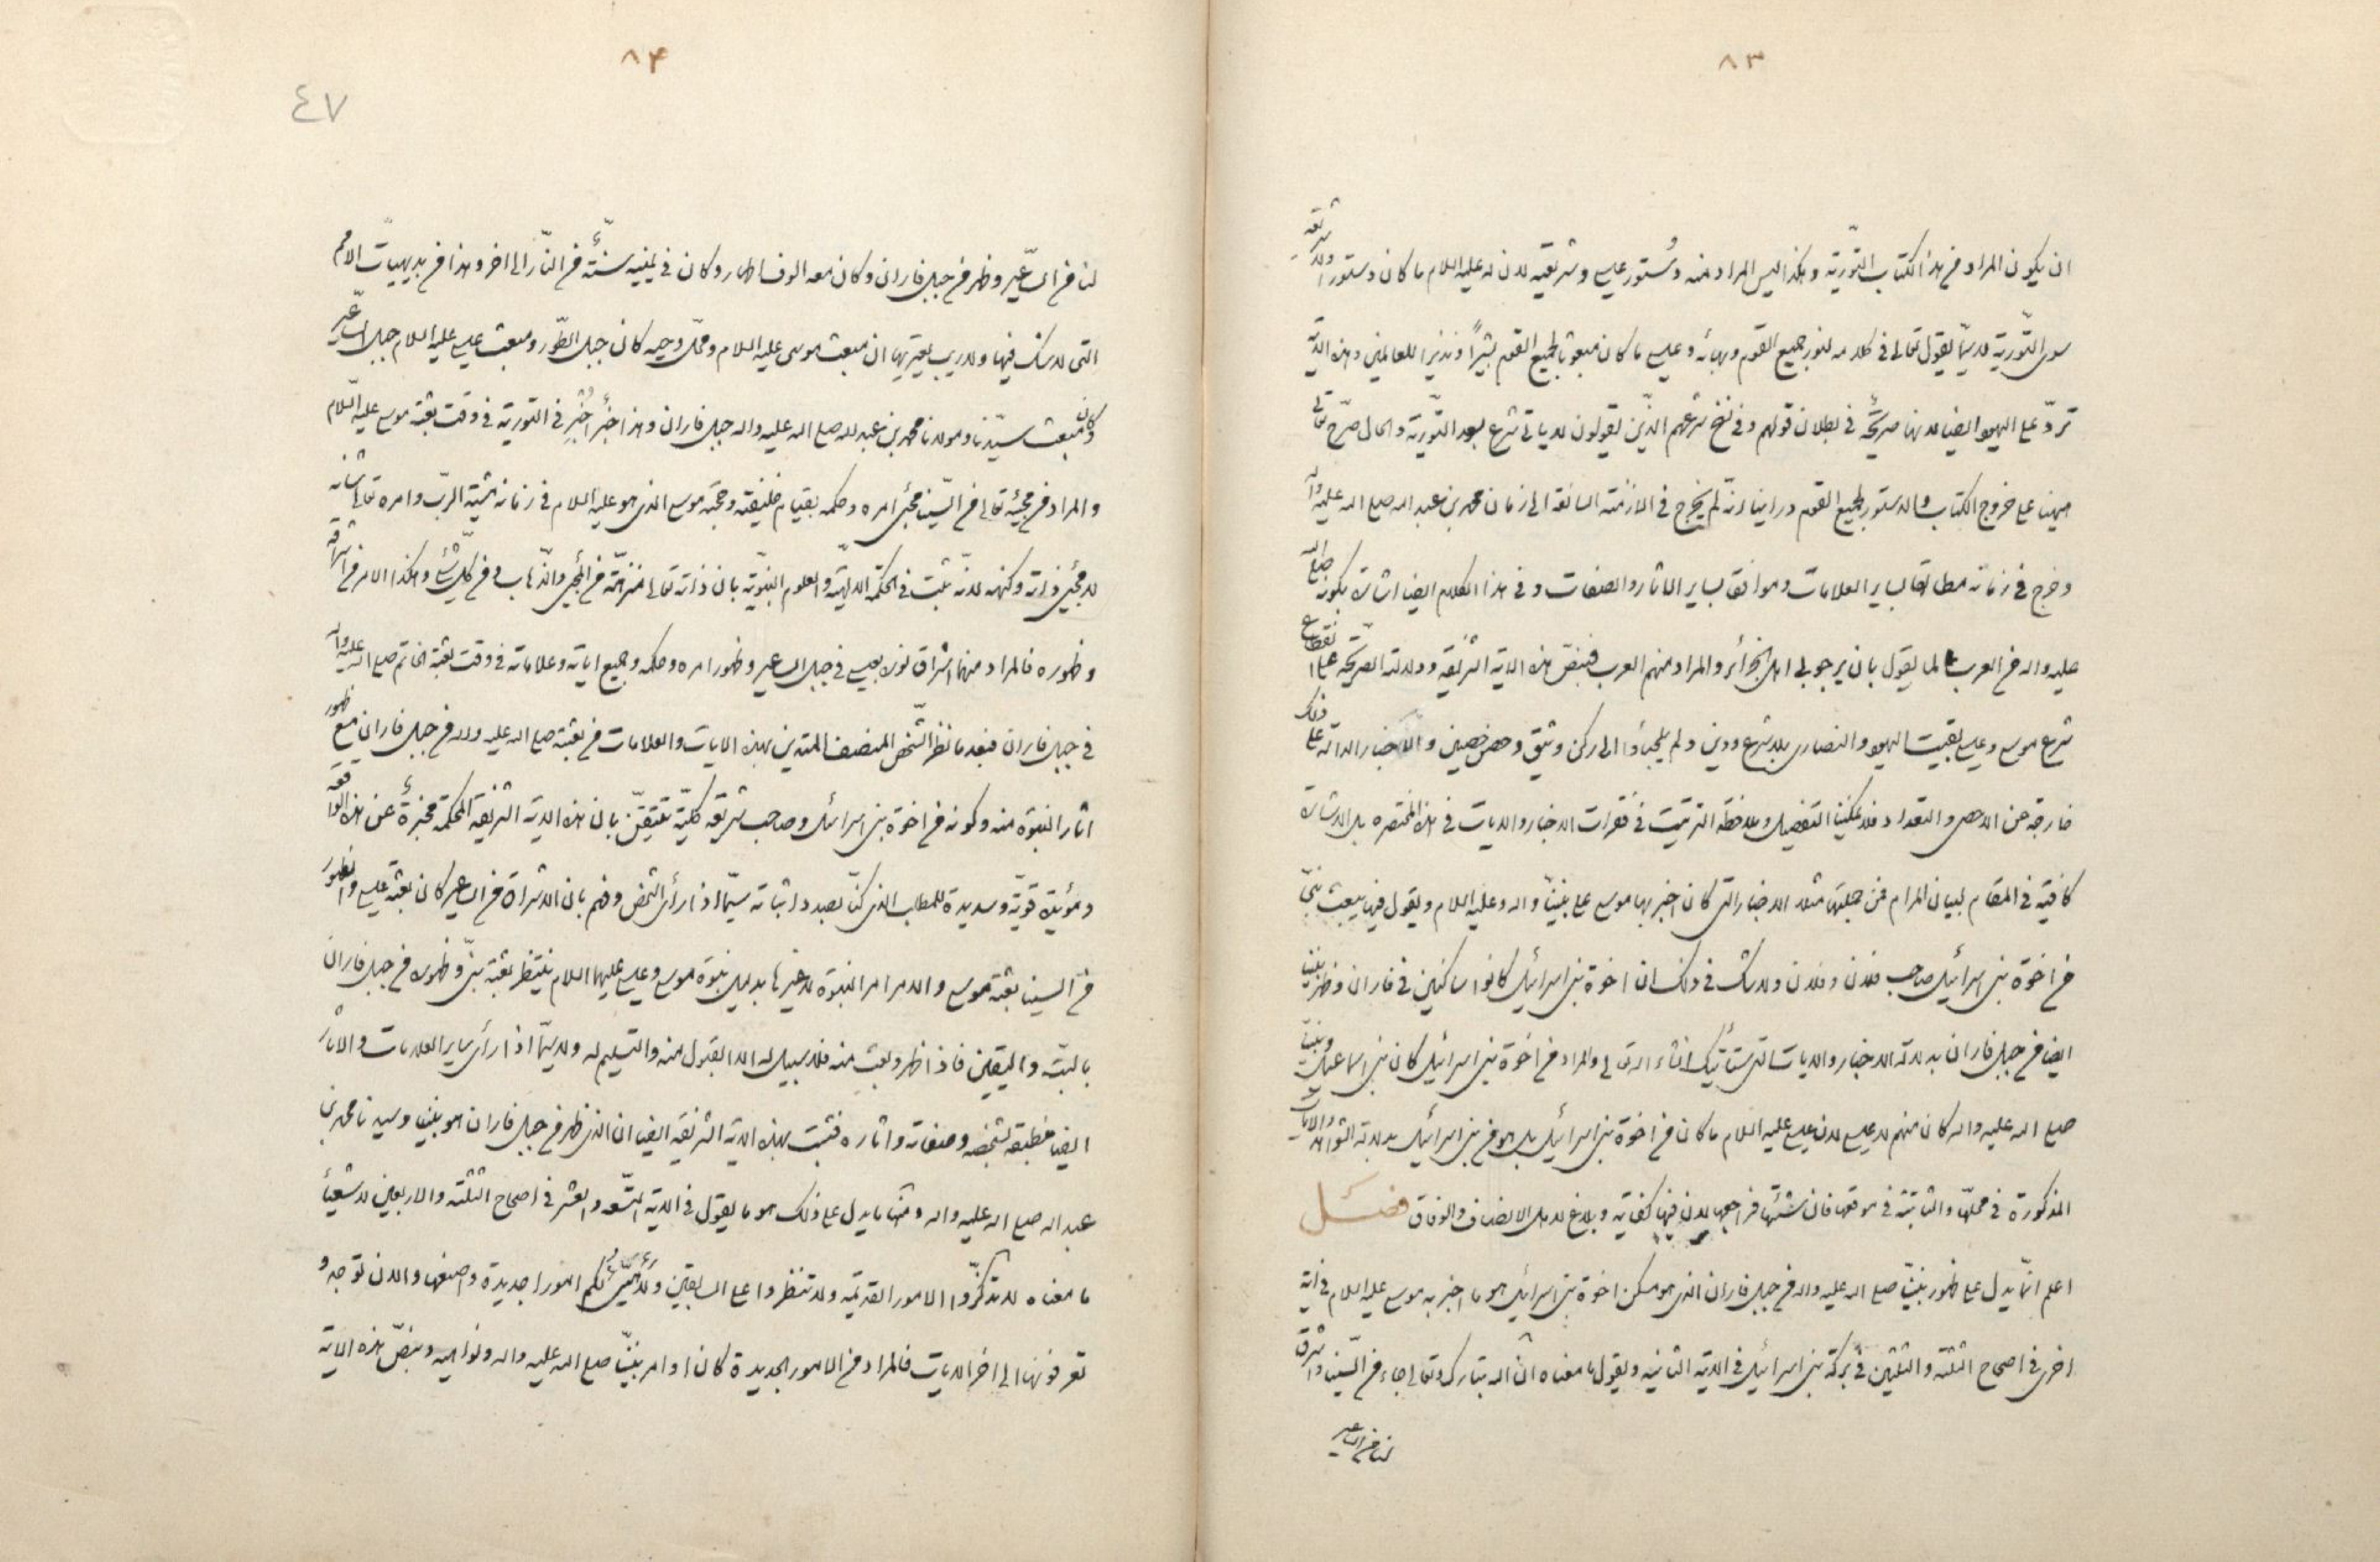 ٨٣
ان يكون المراد من هذا الكتاب التّورية و هكذا ليس المراد منه دستور عيسى و شريعته لان له عليه السلام ما كان دستور او شريعة
سوى التّورية لا سيّما يقول تعالى فى كلامه لنور جميع القوم و بهائه و عيسى ما كان مبعوثا لجميع القوم بشيرًا و نذيرا للعالمين و هذه الاية
تردّ على اليهود ايضا لانها صريحة فى بطلان قولهم و فى نسخ شرعهم الذين يقولون لا ياتى شرع بعد التّورية و الحال صرّح تعالى
هيهنا على خروج الكتاب و الدستور لجميع القوم و راينا انه لم يخرج فى الازمنة السالفة الى زمان محمد بن عبد الله صلى الله عليه و آله
و خرج فى زمانه مطابقا لساير العلامات و موافقا لساير الاثار و الصفات و فى هذا الكلام ايضا اشارة بكونه صلى الله
عليه و اله من العرب لما يقول بان يرجو لى اهل الجزائر و المراد منهم العرب فبنصّ هذه الاية الشريفة و دلالته الصريحة على انقطاع
شرع موسى و عيسى بقيت اليهود و النصارى بلا شرع و دين و لم يلتجأوا الى ركن وثيق و حصن حصين و الاخبار الدالة على ذلك
خارجة عن الاحصى و التعداد فلا يمكننا التفضيل و ملاحظة الترتيب فى فقرات الاخبار و الايات فى هذا المختصر بل الاشارة
كافية فى المقام لبيان المرام فمن جملتها مثلا الاخبار التى كان اخبر بها موسى على نبينا و اله و عليه السلام و يقول فيها يبعث نبىّ
من اخوة بنى اسرائيل صاحب فلان و فلان و لا شك فى ذلك ان اخوة بنى اسرائيل كانوا ساكنين فى فاران و ظهر نبينا
ايضا من جبل فاران بدلالة الاخبار و الايات التى ستأتيك انشاء الله تعالى و المراد من اخوة بنى اسرائيل كان بنى اسماعيل و نبينا
صلى الله عليه و اله كان منهم لا عيسى لان عيسى عليه السلام ما كان من اخوة بنى اسرائيل بل هو من بنى اسرائيل بدلالة التواريخ و الايات
المذكورة فى محلّها و الثابتة فى موقعها فان شئتها فراجعها لان فيها كفاية و بلاغ لاهل الانصاف و الوفاق فصل
اعلم انّ ما يدل على ظهور نبينا صلى الله عليه و اله من جبل فاران الذى هو مسكن اخوة بنى اسرائيل هو ما اخبر به موسى عليه السلام فى اية
اخرى فى اصحاح الثلثة و الثلثين فى بركة بنى اسرائيل فى الاية الثانية و يقول ما معناه انّ الله تبارك و تعالى جاء من السّينا و اشرق
لنا من الساعير
٨٤
٤٧
لنا من السّاعير و ظهر من جبل فاران و كان معه الوف اطهار و كان فى يمينه سنّة من النّار الى اخر و هذا من بديهيات الامم
التى لا شك فيها و لا ريب يعتريها ان مبعث موسى عليه السلام و محلّ وحيه كان جبل الطّور و مبعث عيسى عليه السلام جبل السّاعير
و كان مبعث سيّدنا و مولانا محمد بن عبد الله صلى الله عليه و اله جبل فاران و هذا خبر اُخبِر فى التورية فى وقت بعثة موسى عليه السّلام
و المراد من مجيئه تعالى من السّينا مجئ امره و حكمه بقيام خليفته و حجّته موسى الذى هو عليه السلام فى زمانه مشية الربّ و امره تعالى شانه
لا مجئ ذاته و كنهه لانه ثبت فى الحكمة الالهيّة و العلوم النبويّة بان ذاته تعالى منزهة من المجئ و الذّهاب و من كلّ شئ و هكذا الامر من اشراقه
و ظهوره فالمراد منهما اشراق نوره بعيسى فى جبل الساعير و ظهور امره و حكمه و جميع اياته و علاماته فى وقت بعثة الخاتم صلى الله عليه و آله
فى جبل فاران فبعد ما نظر الشّخص المنصف المتدين بهذه الايات و العلامات من بعثته صلى الله عليه و اله من جبل فاران مع ظهور
اثار النبوة منه و كونه من اخوة بنى اسرائيل و صاحب شريعة كليّة يتيقّن بان هذه الاية الشريفة المحكمة مخبرة عن هذه الواقعة
و مؤيدة قويّة و سديدة للمطلب الذى كنّا بصدد اثباته سيّما اذا رأى الشخص و فهم بان الاشراق من الساعير كان بعثة عيسى و الظهور
من السينا بعثة موسى و الامر امر النبوة لا غيرها بدليل نبوة موسى و عيسى عليهما السلام ينتظر بعثة نبىّ و ظهوره من جبل فاران
بالبتّ و اليقين فاذا ظهر و بعث منه فلا سبيل له الا القبول منه و التسليم له و لا سيّما اذا رأى ساير العلامات و الاثار
ايضا منطبقة لشخصه و صفاته و اثاره فثبت بهذه الاية الشريفة ايضا ان الذى ظهر من جبل فاران هو نبينا و سيدنا محمد بن
عبد الله صلى الله عليه و اله و منها ما يدل على ذلك هو ما يقول فى الاية التّسعة و العشر فى اصحاح الثلثة و الاربعين لاشعيا
ما معناه لا تذكّروا الامور القديمة و لا تنظروا على السابقين لكم امورا جديدة و اصنعها و الان توجد و
تعرفونها الى اخر الايات فالمراد من الامور الجديدة كان اوامر نبينا صلى الله عليه و اله و نواهيه و بنصّ هذه الاية